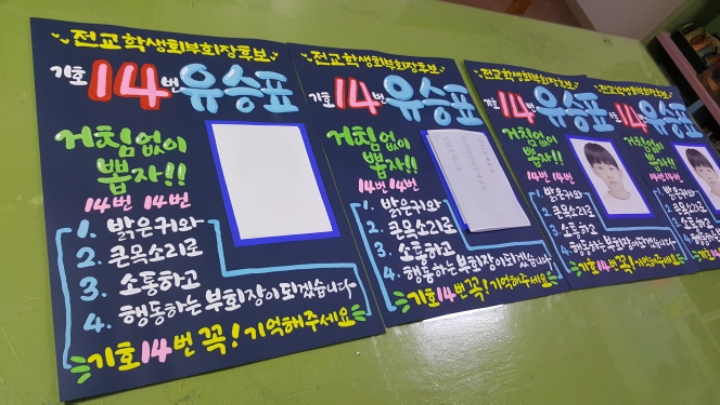 전교학생회부회장후보
기호 14번 유승표
거침없이
뽑자!!
14번 14번
1. 밝은귀와
2. 큰목소리로
3. 소통하고
4. 행동하는 부회장이되겠습니다
기호14번 꼭! 기억해주세요
전교학생회부회장후보
기호 14번 유승표
거침없이
뽑자!!
14번 14번
1. 밝은귀와
2. 큰목소리로
3. 소통하고
4. 행동하는 부회장이되겠습니다
기호14번 꼭! 기억해주세요
전교학생회부회장후보
기호 14번 유승표
거침없이
뽑자!!
14번 14번
1. 밝은귀와
2. 큰목소리로
3. 소통하고
4. 행동하는 부회장이되겠습니다
기호14번 꼭! 기억해주세요
전교학생회부회장후보
기호 14번 유승표
거침없이
뽑자!!
14번 14번
1. 밝은귀와
2. 큰목소리로
3. 소통하고
4. 행동하는
기호14번